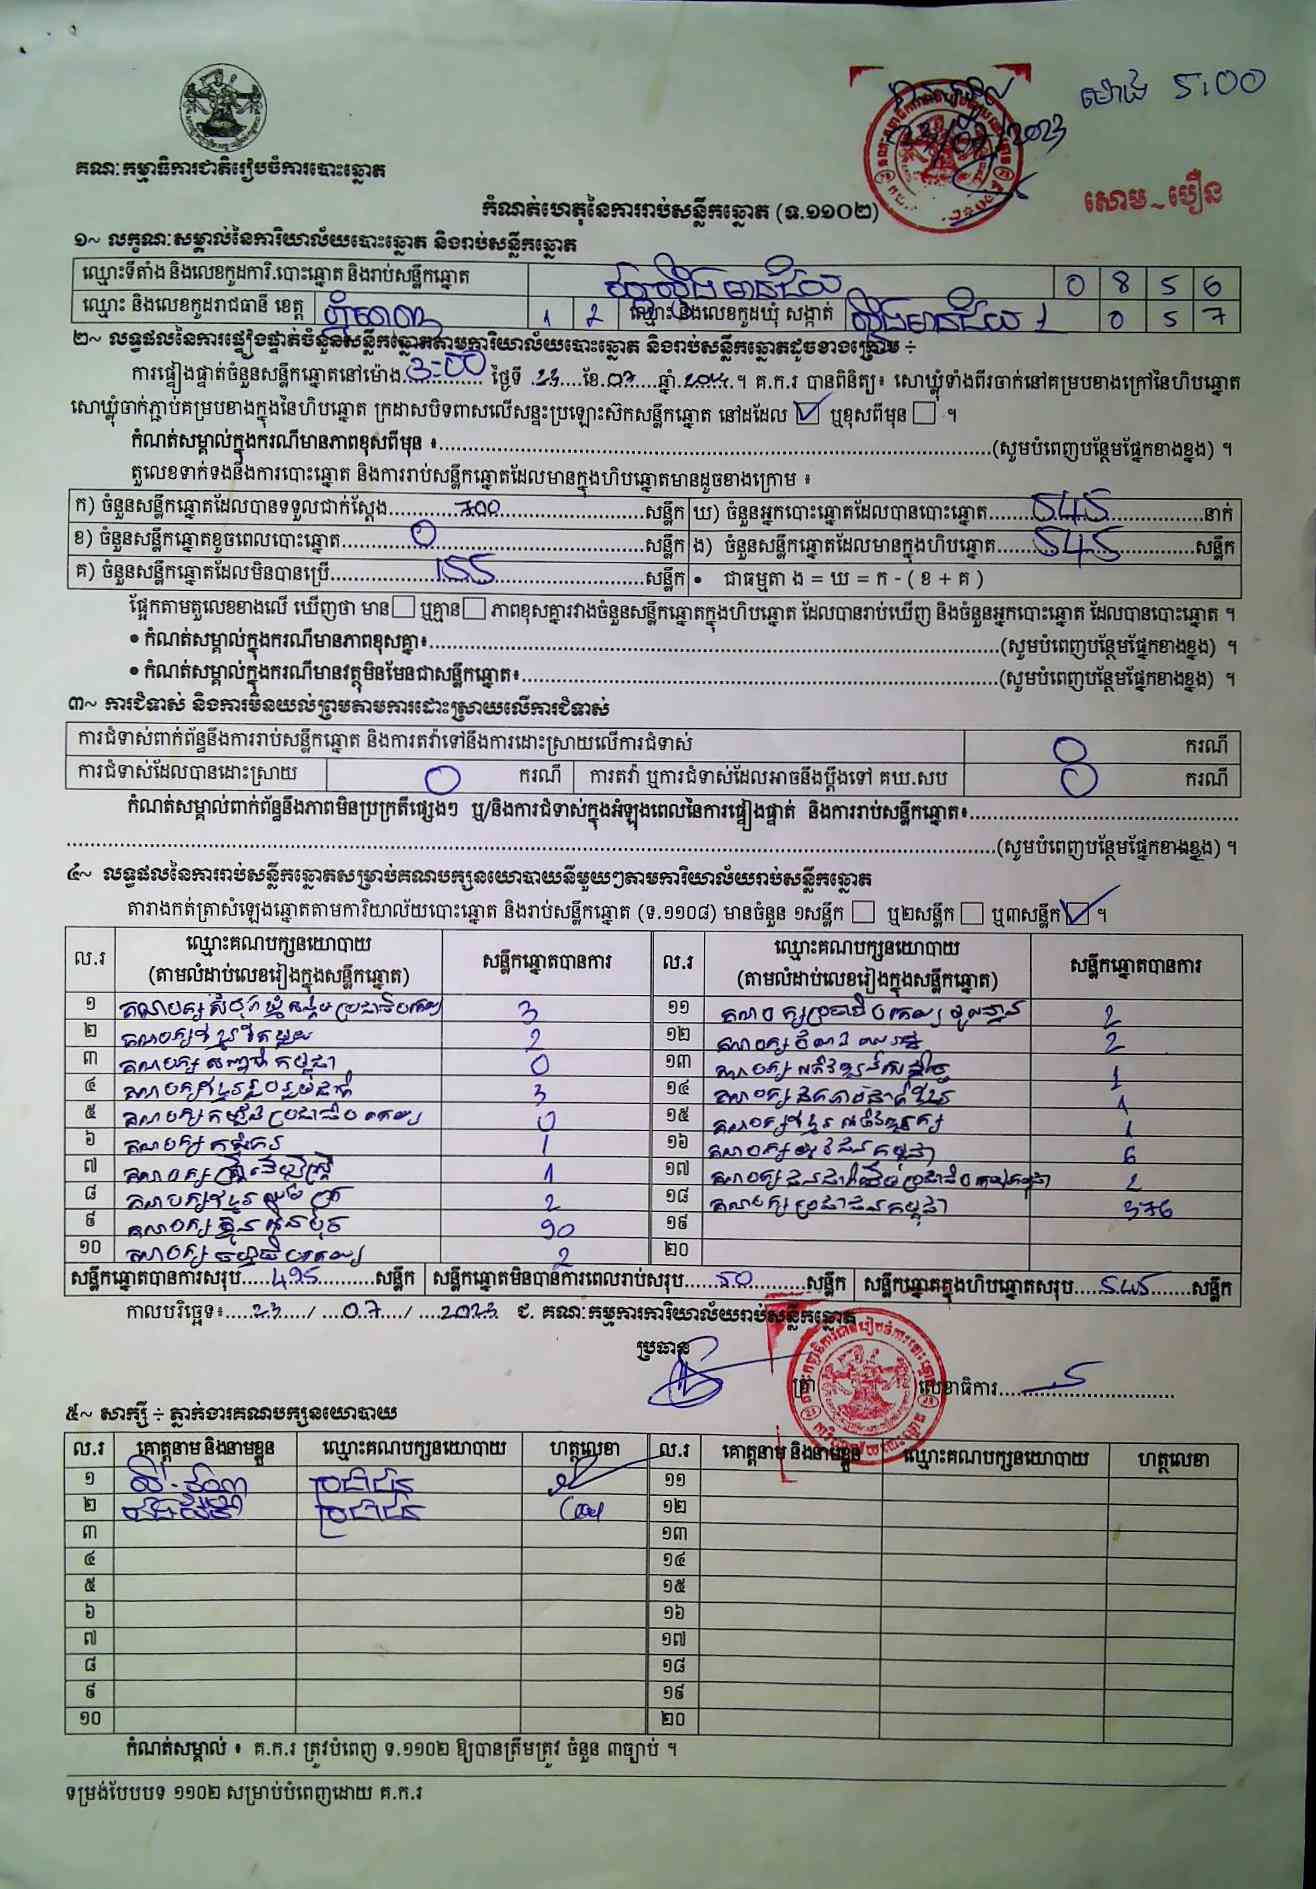 ម៉ោង 5:00
គណៈកម្មាធិការជាតិរៀបចំការបោះឆ្នោត
សោម~បឿន
កំណត់ហេតុនៃការរាប់សន្លឹកឆ្នោត (ទ.១១០២)
១~ លក្ខណៈសម្គាល់នៃការិយាល័យបោះឆ្នោត និងរាប់សន្លឹកឆ្នោត
ឈ្មោះទីតាំង និងលេខកូដការិ.បោះឆ្នោត និងរាប់សន្លឹកឆ្នោត វត្តស្ទឹងមានជ័យ 0 8 5 6
ឈ្មោះ និងលេខកូដរាជធានី ខេត្ត ភ្នំពេញ 1 2 ឈ្មោះ និងលេខកូដឃុំ សង្កាត់ ស្ទឹងមានជ័យ 1 0 5 7
២~ លទ្ធផលនៃការផ្ទៀងផ្ទាត់ចំនួនសន្លឹកឆ្នោតតាមការិយាល័យបោះឆ្នោត និងរាប់សន្លឹកឆ្នោតដូចខាងក្រោម ÷
ការផ្ទៀងផ្ទាត់ចំនួនសន្លឹកឆ្នោតនៅម៉ោង 3:00 ថ្ងៃទី 23 ខែ 07 ឆ្នាំ 2023 ។ គ.ក.រ បានពិនិត្យ៖ សោឃ្លុំទាំងពីរចាក់នៅគម្របខាងក្រៅនៃហិបឆ្នោត
សោឃ្លុំចាក់ភ្ជាប់គម្របខាងក្នុងនៃហិបឆ្នោត ក្រដាសបិទពាសលើសន្ទះប្រឡោះស៊កសន្លឹកឆ្នោត នៅដដែល ឬខុសពីមុន ។
កំណត់សម្គាល់ក្នុងករណីមានភាពខុសពីមុន ៖ (សូមបំពេញបន្ថែមផ្នែកខាងខ្នង) ។
តួលេខទាក់ទងនឹងការបោះឆ្នោត និងការរាប់សន្លឹកឆ្នោតដែលមានក្នុងហិបឆ្នោតមានដូចខាងក្រោម ៖
ក) ចំនួនសន្លឹកឆ្នោតដែលបានទទួលជាក់ស្តែង 700 សន្លឹក ឃ) ចំនួនអ្នកបោះឆ្នោតដែលបានបោះឆ្នោត 545 នាក់
ខ) ចំនួនសន្លឹកឆ្នោតខូចពេលបោះឆ្នោត 0 សន្លឹក ង) ចំនួនសន្លឹកឆ្នោតដែលមានក្នុងហិបឆ្នោត 545 សន្លឹក
គ) ចំនួនសន្លឹកឆ្នោតដែលមិនបានប្រើ 155 សន្លឹក • ជាធម្មតា ង = ឃ = ក - ( ខ + គ )
ផ្អែកតាមតួលេខខាងលើ ឃើញថា មាន ឬគ្មាន ភាពខុសគ្នារវាងចំនួនសន្លឹកឆ្នោតក្នុងហិបឆ្នោត ដែលបានរាប់ឃើញ និងចំនួនអ្នកបោះឆ្នោត ដែលបានបោះឆ្នោត ។
• កំណត់សម្គាល់ក្នុងករណីមានភាពខុសគ្នា៖ (សូមបំពេញបន្ថែមផ្នែកខាងខ្នង) ។
• កំណត់សម្គាល់ក្នុងករណីមានវត្ថុមិនមែនជាសន្លឹកឆ្នោត៖ (សូមបំពេញបន្ថែមផ្នែកខាងខ្នង) ។
៣~ ការជំទាស់ និងការមិនយល់ព្រមតាមការដោះស្រាយលើការជំទាស់
ការជំទាស់ពាក់ព័ន្ធនឹងការរាប់សន្លឹកឆ្នោត និងការតវ៉ាទៅនឹងការដោះស្រាយលើការជំទាស់ 0 ករណី
ការជំទាស់ដែលបានដោះស្រាយ 0 ករណី ការតវ៉ា ឬការជំទាស់ដែលអាចនឹងប្តឹងទៅ គឃ.សប 0 ករណី
កំណត់សម្គាល់ពាក់ព័ន្ធនឹងភាពមិនប្រក្រតីផ្សេងៗ ឬ/និងការជំទាស់ក្នុងអំឡុងពេលនៃការផ្ទៀងផ្ទាត់ និងការរាប់សន្លឹកឆ្នោត៖
(សូមបំពេញបន្ថែមផ្នែកខាងខ្នង) ។
៤~ លទ្ធផលនៃការរាប់សន្លឹកឆ្នោតសម្រាប់គណបក្សនយោបាយនីមួយៗតាមការិយាល័យរាប់សន្លឹកឆ្នោត
តារាងកត់ត្រាសំឡេងឆ្នោតតាមការិយាល័យបោះឆ្នោត និងរាប់សន្លឹកឆ្នោត (ទ.១១០៨) មានចំនួន ១សន្លឹក ឬ២សន្លឹក ឬ៣សន្លឹក ។
ល.រ ឈ្មោះគណបក្សនយោបាយ (តាមលំដាប់លេខរៀងក្នុងសន្លឹកឆ្នោត) សន្លឹកឆ្នោតបានការ ល.រ ឈ្មោះគណបក្សនយោបាយ (តាមលំដាប់លេខរៀងក្នុងសន្លឹកឆ្នោត) សន្លឹកឆ្នោតបានការ
១ គណបក្សសំបុកឃ្មុំសង្គមប្រជាធិបតេយ្យ 3 ១១ គណបក្សប្រជាធិបតេយ្យមូលដ្ឋាន 2
២ គណបក្សខ្មែរតែមួយ 2 ១២ គណបក្ស 2
៣ គណបក្ស កម្ពុជា 0 ១៣ គណបក្ស 1
៤ គណបក្សខ្មែររួបរួមជាតិ 3 ១៤ គណបក្សឯកភាពជាតិខ្មែរ 1
៥ គណបក្សកម្លាំងប្រជាធិបតេយ្យ 0 ១៥ គណបក្សខ្មែរអភិវឌ្ឍសេដ្ឋកិច្ច 1
៦ គណបក្សកសិករ 1 ១៦ គណបក្សយុវជនកម្ពុជា 6
៧ គណបក្សស្ត្រីដើម្បីស្ត្រី 1 ១៧ គណបក្សជនជាតិដើមប្រជាធិបតេយ្យកម្ពុជា 2
៨ គណបក្សខ្មែរ 2 ១៨ គណបក្សប្រជាជនកម្ពុជា 376
៩ គណបក្សហ៊្វុនស៊ិនប៉ិច 90 ១៩
១០ គណបក្សធម្មាធិបតេយ្យ 2 ២០
សន្លឹកឆ្នោតបានការសរុប 495 សន្លឹក សន្លឹកឆ្នោតមិនបានការពេលរាប់សរុប 50 សន្លឹក សន្លឹកឆ្នោតក្នុងហិបឆ្នោតសរុប 545 សន្លឹក
កាលបរិច្ឆេទ៖ 23 / 07 / 2023 ជ. គណៈកម្មការការិយាល័យរាប់សន្លឹកឆ្នោត
ប្រធាន
ត្រា លេខាធិការ
៥~ សាក្សី ÷ ភ្នាក់ងារគណបក្សនយោបាយ
ល.រ គោត្តនាម និងនាមខ្លួន ឈ្មោះគណបក្សនយោបាយ ហត្ថលេខា ល.រ គោត្តនាម និងនាមខ្លួន ឈ្មោះគណបក្សនយោបាយ ហត្ថលេខា
១ ប្រជាជន ១១
២ ប្រជាជន ១២
៣ ១៣
៤ ១៤
៥ ១៥
៦ ១៦
៧ ១៧
៨ ១៨
៩ ១៩
១០ ២០
កំណត់សម្គាល់ ៖ គ.ក.រ ត្រូវបំពេញ ទ.១១០២ ឱ្យបានត្រឹមត្រូវ ចំនួន ៣ច្បាប់ ។
ទម្រង់បែបបទ ១១០២ សម្រាប់បំពេញដោយ គ.ក.រ